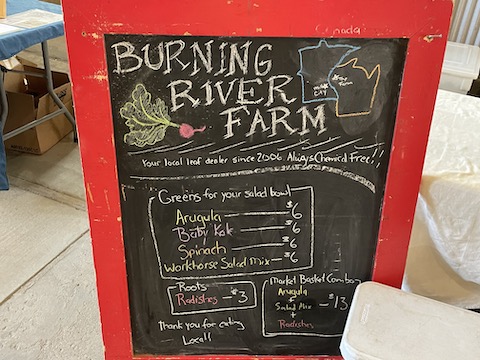 Canada
BURNING
RIVER
FARM
Your local leaf dealer since 2006. Always Chemical Free!!
Greens for your salad bowl
Arugula — $6
Baby Kale — $6
Spinach — $6
Workhorse Salad Mix — $6
Roots
Radishes — $3
Market Basket Combo
Arugula
+
Salad Mix — $13
+
Radishes
Thank you for eating
Local!